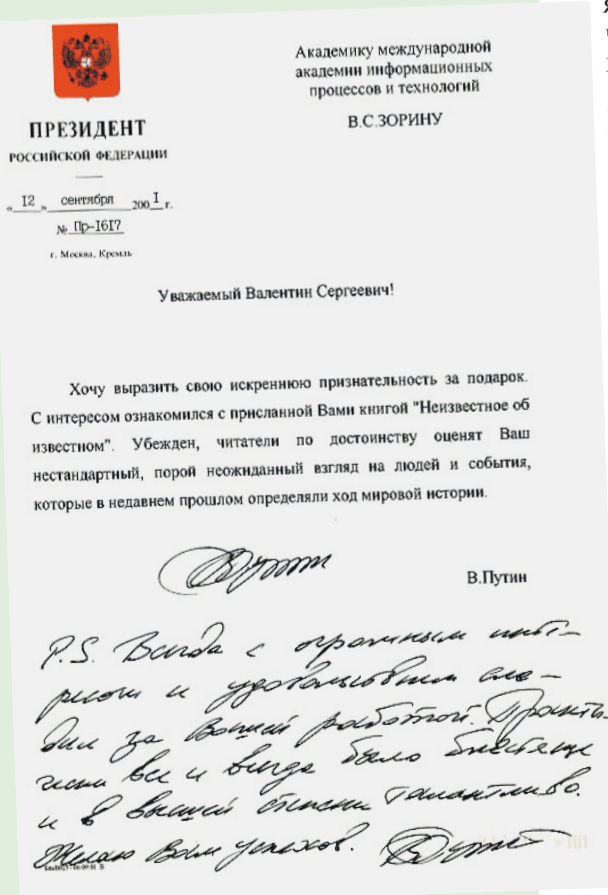 ПРЕЗИДЕНТ
РОССИЙСКОЙ ФЕДЕРАЦИИ
„ 12 „ сентября 2001 г.
№ Пр-1617
г. Москва, Кремль
Академику международной
академии информационных
процессов и технологий
В.С.ЗОРИНУ
Уважаемый Валентин Сергеевич!
Хочу выразить свою искреннюю признательность за подарок.
С интересом ознакомился с присланной Вами книгой "Неизвестное об
известном". Убежден, читатели по достоинству оценят Ваш
нестандартный, порой неожиданный взгляд на людей и события,
которые в недавнем прошлом определяли ход мировой истории.
В.Путин
P.S. Всегда с огромным инте-
ресом и удовольствием сле-
дил за Вашей работой. Практи-
чески все и всегда было блестяще
и в высшей степени талантливо.
Желаю Вам успехов.